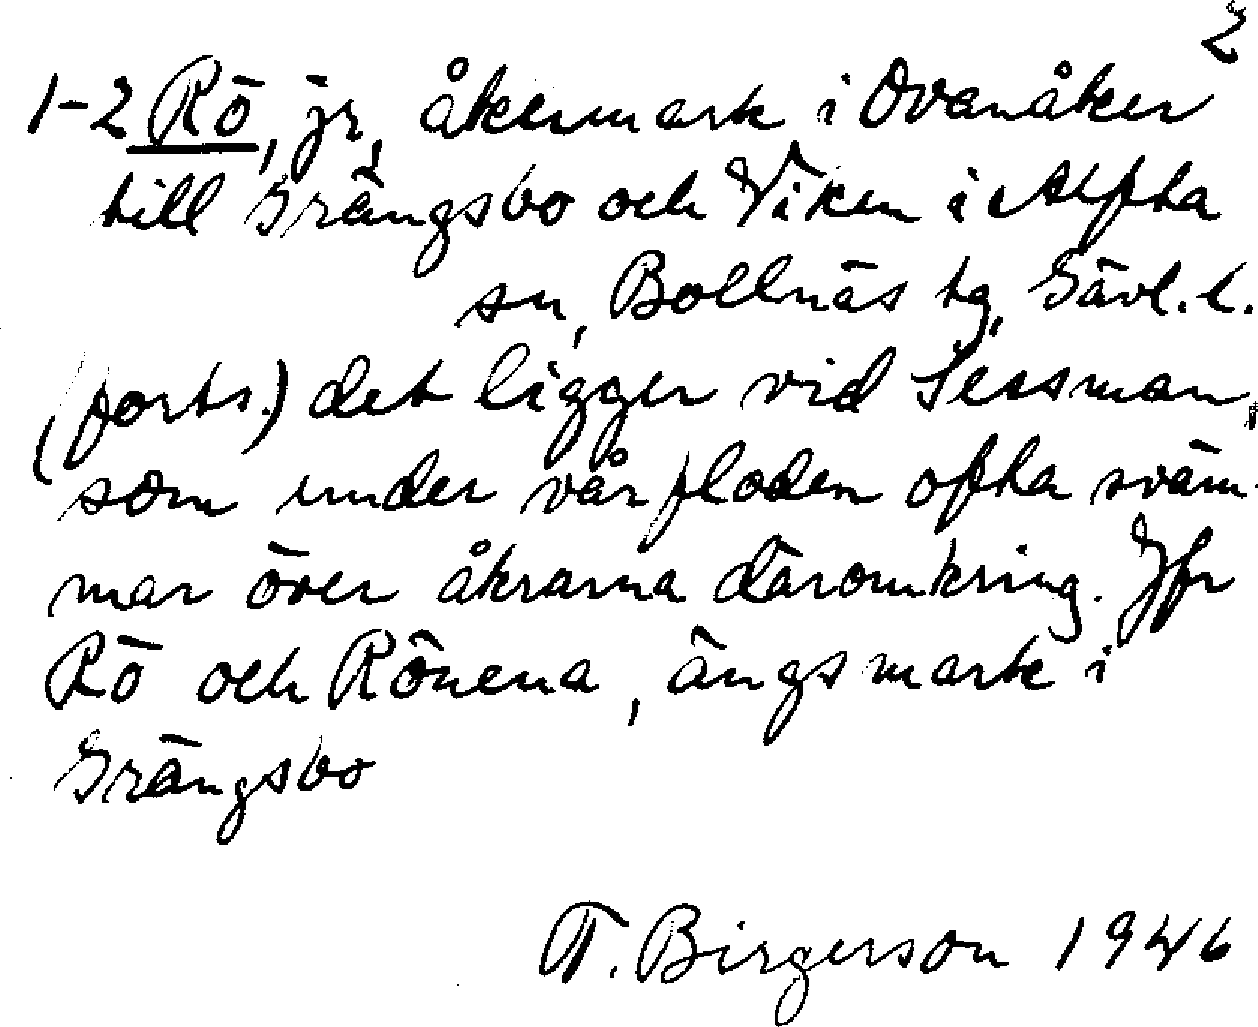 2
1-2 Rö, jr, åkermark i Ovanåker
till Grängsbo och Viken i Alfta
sn, Bollnäs tg, Gävl. l.
(forts.) det ligger vid Sessman,
som under vårfloden ofta sväm-
mar över åkrarna däromkring. Jfr
Rö och Rönena, ängsmark i
Grängsbo
T. Birgerson 1946